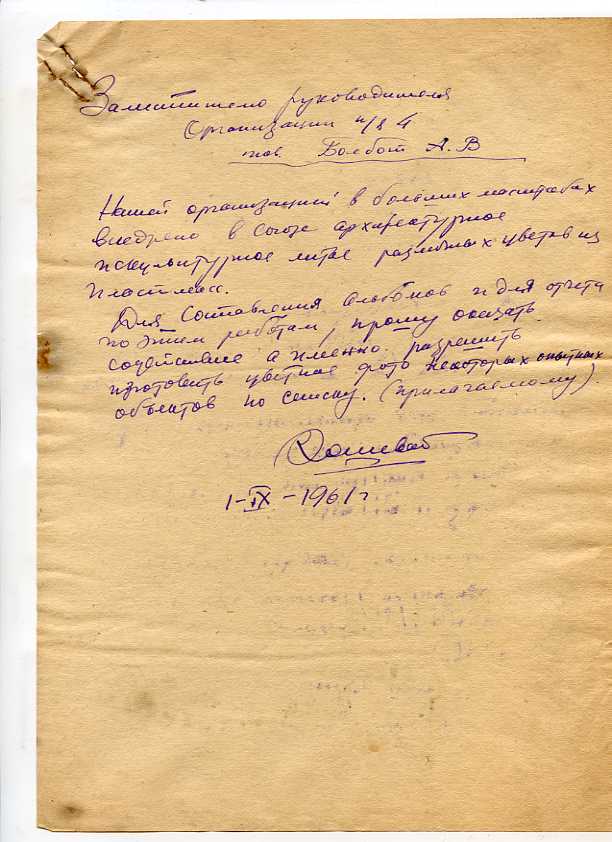 Заместителю руководителя
Организации п/я 4
тов. Болбот А.В
Нашей организацией в больших масштабах
внедрено в Союзе архитектурное
и скульптурное литье различных цветов из
пластмасс.
Для составления альбомов и для отчета
по этим работам, прошу оказать
содействие а именно: разрешить
изготовить цветные фото некоторых опытных
объектов по списку. (прилагаемому).
1-IX-1961 г